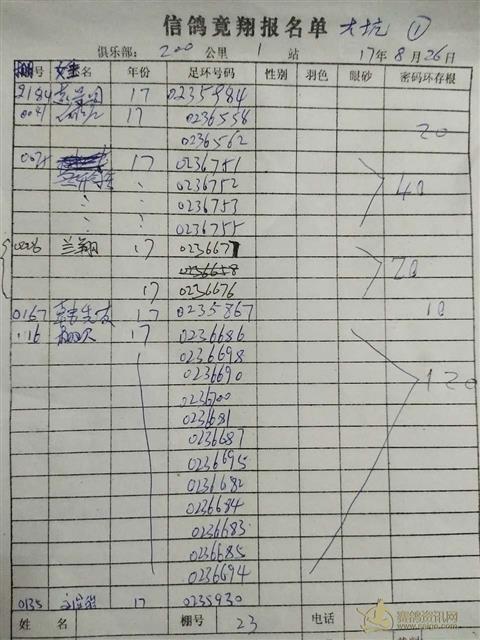 信鸽竟翔报名单 大坑 ①
俱乐部: 200 公里 1 站 17年8月26日
棚号 名 年份 足环号码 性别 羽色 眼砂 密码环存根
2184 17 0235984
0041 17 0236558
0236562 20
0075 17 0236751
: 0236752
: : 0236753 40
: : 0236755
0026 兰翔 17 0236677
0236658 20
17 0236676
0167 17 0235867 10
116 17 0236686
0236698
0236690 120
0236700
0236681
0236687
0236695
0236682
0236684
0236683
0236685
0236694
0135 17 0235930
姓名 棚号 23 电话
赛鸽资讯网